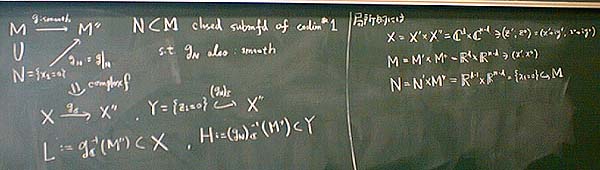 M —g: smooth→ M" N⊂M closed submfd of codim 1
∪ g_N = g|_N s.t g_N also : smooth
N = {x₁=0}
⇓ complexf
X —g_ℂ→ X" , Y = {z₁=0} (g_N)_ℂ X"
L := g_ℂ⁻¹(M") ⊂ X , H := (g_N)_ℂ⁻¹(M") ⊂ Y
局所的には
X = X'×X" = ℂ^d×ℂ^{n-d} ∋ (z', z") = (x'+iy', x"+iy")
M = M'×M" = ℝ^d×ℝ^{n-d} ∋ (x', x")
N = N'×M" = ℝ^{d-1}×ℝ^{n-d} = {x₁=0} ↪ M